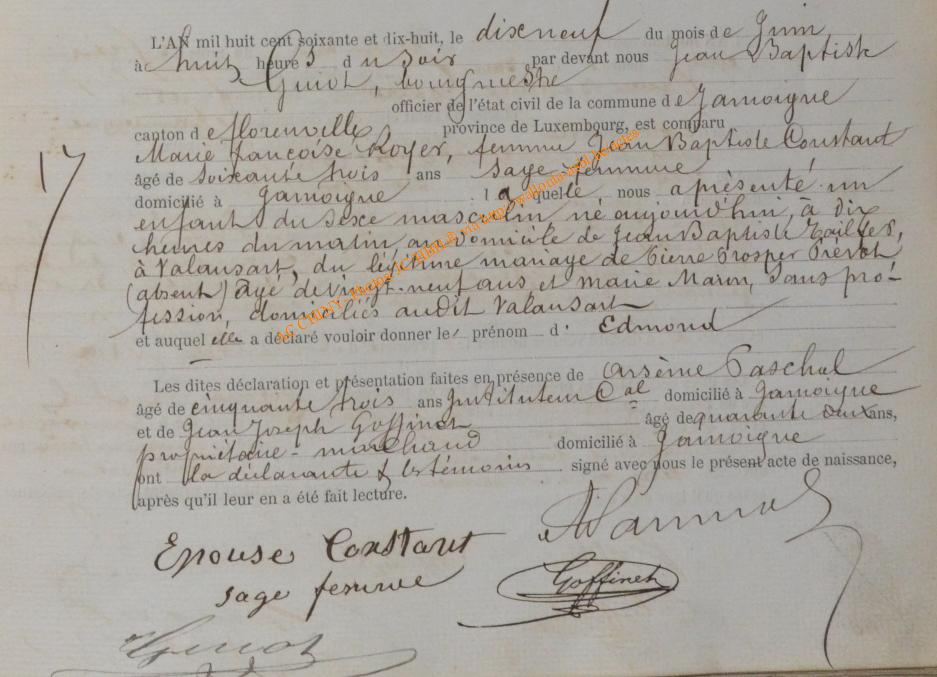 L'AN mil huit cent soixante et dix-huit, le dixneuf du mois de Juin
à huit heures du soir par devant nous Jean Baptiste
Guiot, bourgmestre
officier de l'état civil de la commune de Jamoigne
canton de florenville province de Luxembourg, est comparu
Marie françoise Royer, femme Jean Baptiste Constant
âgé de soixante trois ans sage-femme
domicilié à Jamoigne laquelle nous a présenté un
enfant du sexe masculin né aujourd'hui, à dix
heures du matin, au domicile de Jean Baptiste
à Valansart, du légitime mariage de Pierre Prosper Prévot
(absent) âgé de vingt-neuf ans et marie Maron, sans pro-
fession, domiciliés audit Valansart
17
et auquel elle a déclaré vouloir donner le prénom d' Edmond
Les dites déclaration et présentation faites en présence de Arsène Paschal
âgé de cinquante trois ans Instituteur Cal domicilié à Jamoigne
et de Jean Joseph Goffinet âgé de quarante deux ans,
propriétaire-marchand domicilié à Jamoigne
ont la déclarante & les témoins signé avec nous le présent acte de naissance,
après qu'il leur en a été fait lecture.
Epouse Constant
sage femme
Goffinet
Guiot